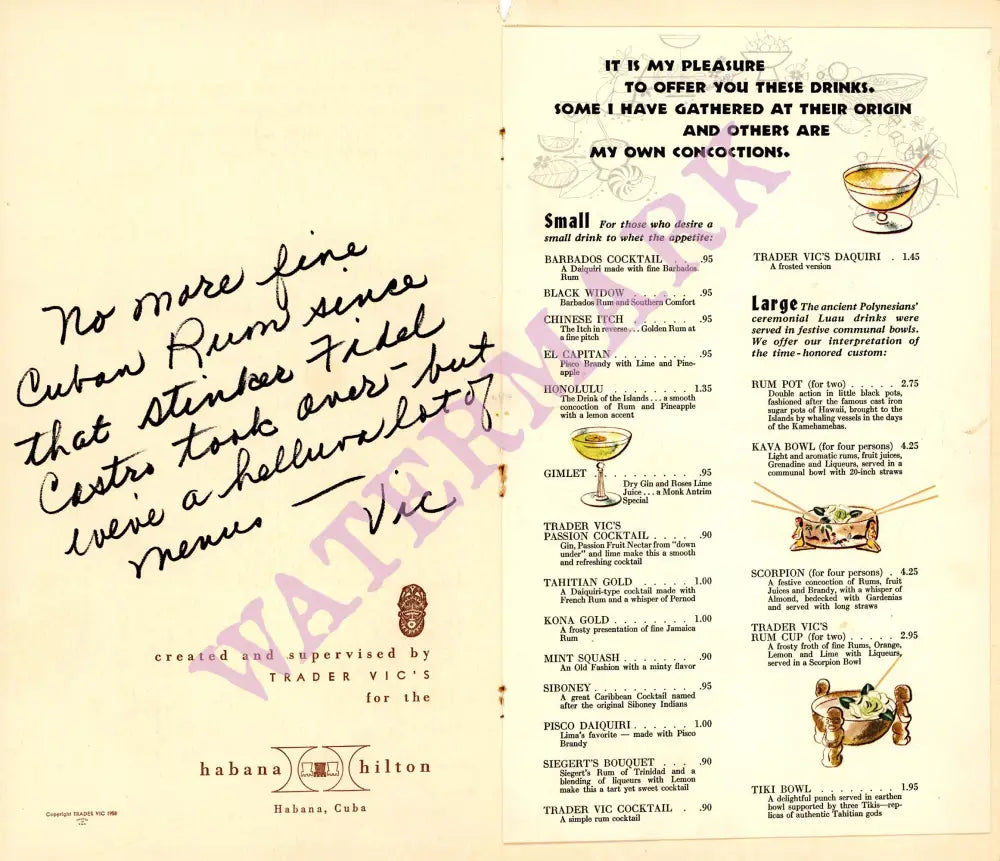 No more fine
Cuban Rum since
that stinker Fidel
Castro took over - but
weve a helluva lot of
menus — Vic
created and supervised by
TRADER VIC'S
for the
habana hilton
Habana, Cuba
Copyright TRADER VIC 1958
IT IS MY PLEASURE
TO OFFER YOU THESE DRINKS.
SOME I HAVE GATHERED AT THEIR ORIGIN
AND OTHERS ARE
MY OWN CONCOCTIONS.
Small For those who desire a
small drink to whet the appetite:
BARBADOS COCKTAIL . . . .95
A Daiquiri made with fine Barbados
Rum
BLACK WIDOW . . . . . . .95
Barbados Rum and Southern Comfort
CHINESE ITCH . . . . . . .95
The Itch in reverse . . . Golden Rum at
a fine pitch
EL CAPITAN . . . . . . . . .95
Pisco Brandy with Lime and Pine-
apple
HONOLULU . . . . . . . . 1.35
The Drink of the Islands . . . a smooth
concoction of Rum and Pineapple
with a lemon accent
GIMLET . . . . . . . . . . .95
Dry Gin and Roses Lime
Juice . . . a Monk Antrim
Special
TRADER VIC'S
PASSION COCKTAIL . . . . .90
Gin, Passion Fruit Nectar from "down
under" and lime make this a smooth
and refreshing cocktail
TAHITIAN GOLD . . . . . 1.00
A Daiquiri-type cocktail made with
French Rum and a whisper of Pernod
KONA GOLD . . . . . . . . 1.00
A frosty presentation of fine Jamaica
Rum
MINT SQUASH . . . . . . . .90
An Old Fashion with a minty flavor
SIBONEY . . . . . . . . . . .95
A great Caribbean Cocktail named
after the original Siboney Indians
PISCO DAIQUIRI . . . . . . 1.00
Lima's favorite — made with Pisco
Brandy
SIEGERT'S BOUQUET . . . .90
Siegert's Rum of Trinidad and a
blending of liqueurs with Lemon
make this a tart yet sweet cocktail
TRADER VIC COCKTAIL . .90
A simple rum cocktail
TRADER VIC'S DAQUIRI . 1.45
A frosted version
Large The ancient Polynesians'
ceremonial Luau drinks were
served in festive communal bowls.
We offer our interpretation of
the time-honored custom:
RUM POT (for two) . . . . . 2.75
Double action in little black pots,
fashioned after the famous cast iron
sugar pots of Hawaii, brought to the
Islands by whaling vessels in the days
of the Kamehamehas.
KAVA BOWL (for four persons) 4.25
Light and aromatic rums, fruit juices,
Grenadine and Liqueurs, served in a
communal bowl with 20-inch straws
SCORPION (for four persons) . 4.25
A festive concoction of Rums, fruit
Juices and Brandy, with a whisper of
Almond, bedecked with Gardenias
and served with long straws
TRADER VIC'S
RUM CUP (for two) . . . . . 2.95
A frosty froth of fine Rums, Orange,
Lemon and Lime with Liqueurs,
served in a Scorpion Bowl
TIKI BOWL . . . . . . . . 1.95
A delightful punch served in earthen
bowl supported by three Tikis—rep-
licas of authentic Tahitian gods
WATERMARK